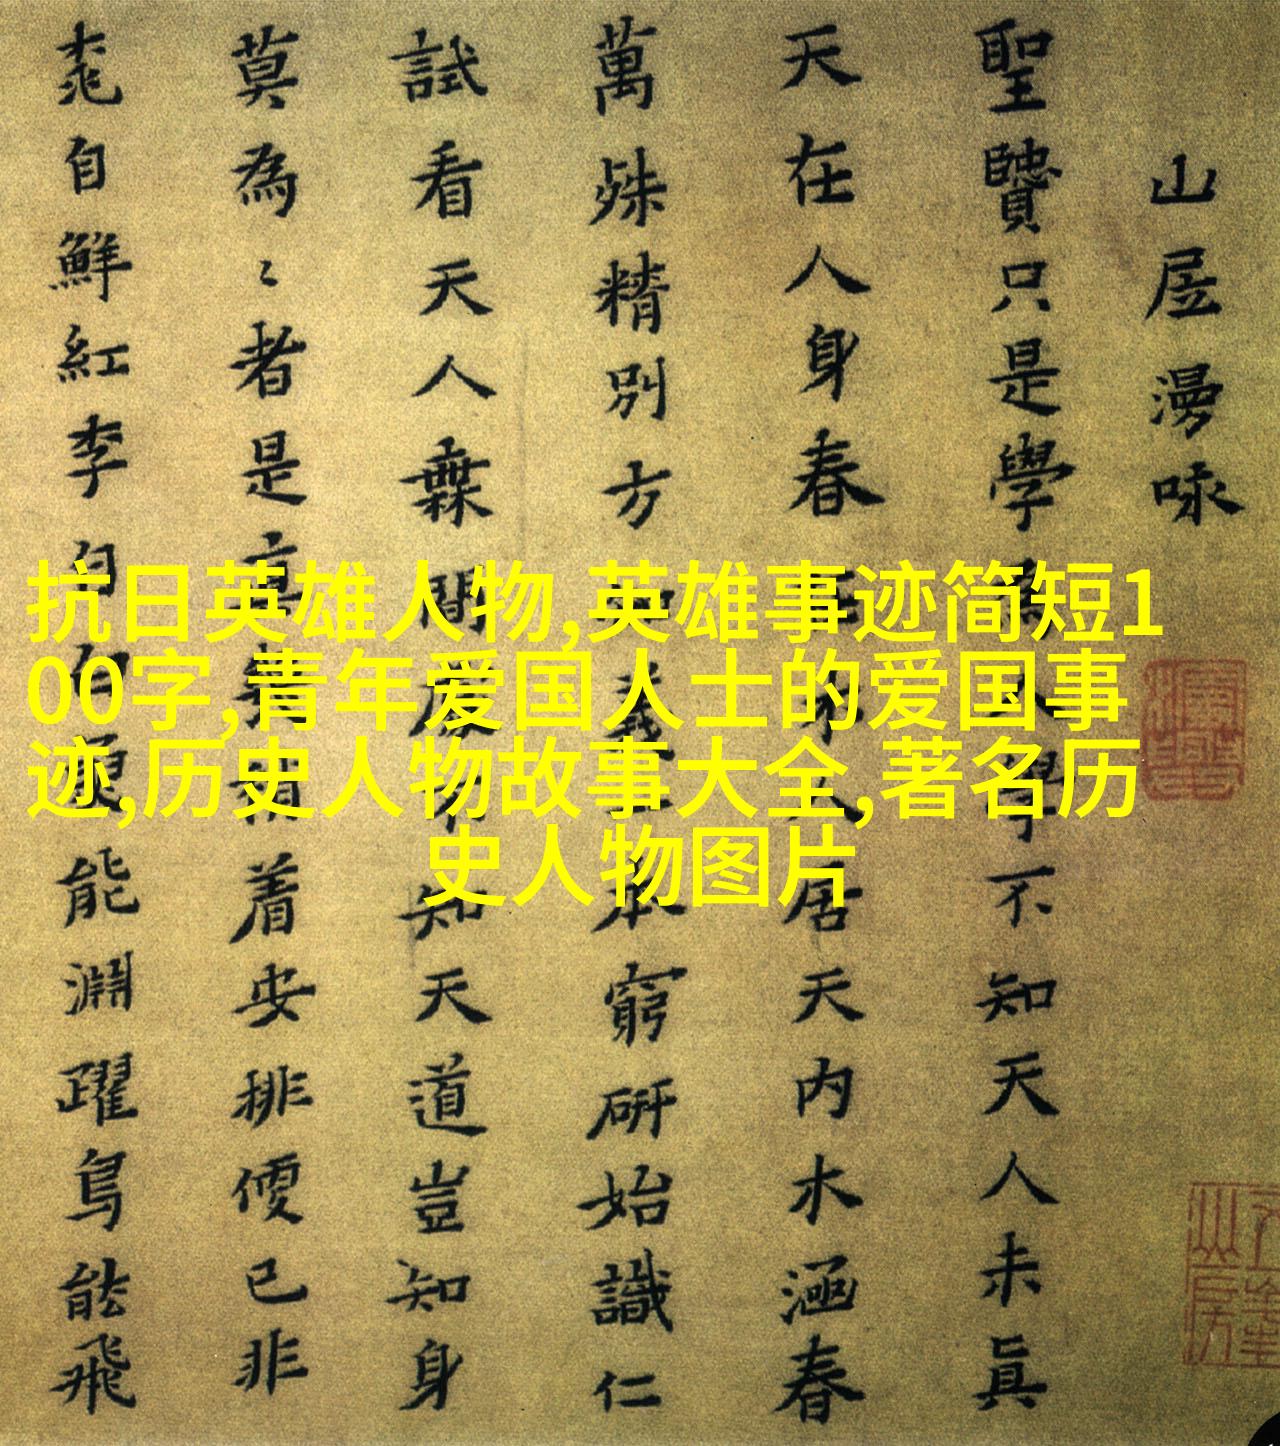 山居漫咏
聖賢只是學人學不知天人未眞
天在人身春人居天內木涵春
萬殊精別方本窮研始識仁
試看天人無間知天道豈知身
莫為〻者是着安排便已非
桃自鮮紅李自白能淵躍鳥能飛
抗日英雄人物,英雄事迹简短1
00字,青年爱国人士的爱国事
迹,历史人物故事大全,著名历
史人物图片